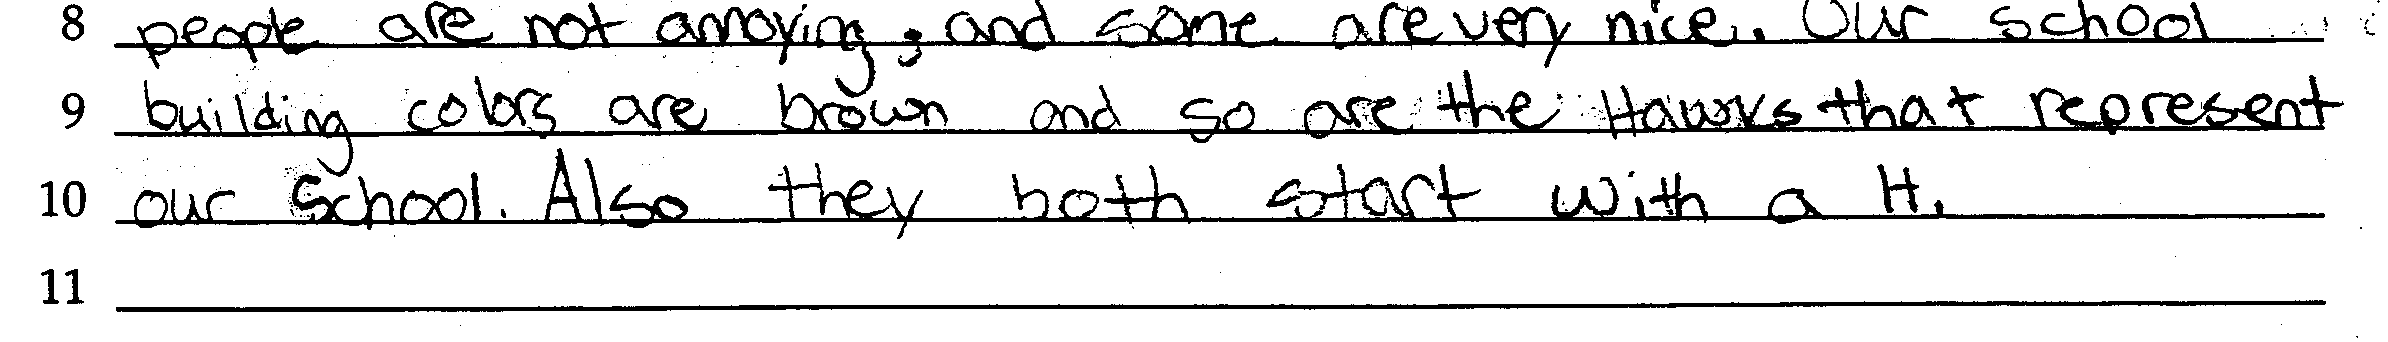 8 people are not annoying; and some are very nice. Our school
9 building colors are brown and so are the Hawks that represent
10 our school. Also they both start with a H.
11